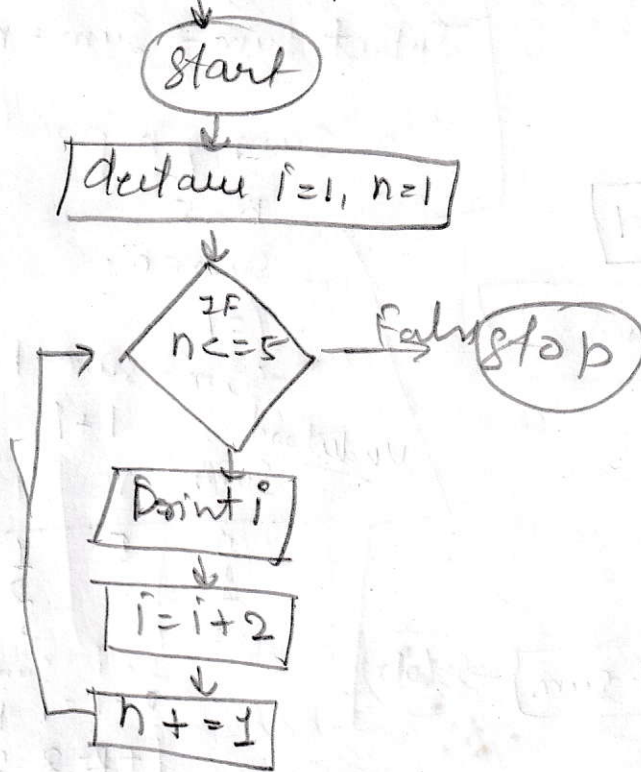 start
i=1, n=1
IF
n<=5
False
stop
Print i
i=i+2
n+=1